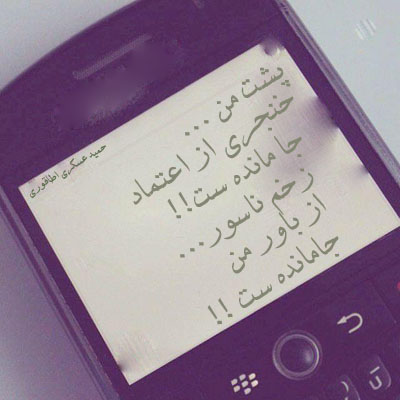 پشت من ...
خنجری از اعتماد
جا مانده ست!!
زخم ناسور...
از باور من
جامانده ست !!
حمید عسکری اطاقوری